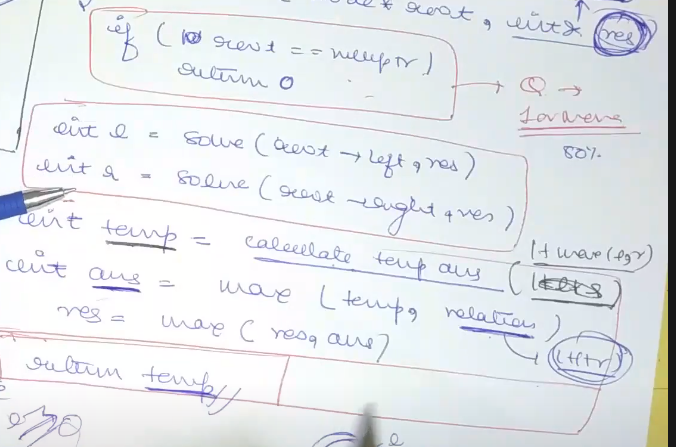 root, int& res
if ( root == nullptr )
return 0
Q →
80%
int l = solve ( root → left, res )
int r = solve ( root → right, res )
int temp = calculate temp ans ( 1 + max (l, r)
int ans = max ( temp, relation )
res = max ( res, ans )
1+l+r
return temp //